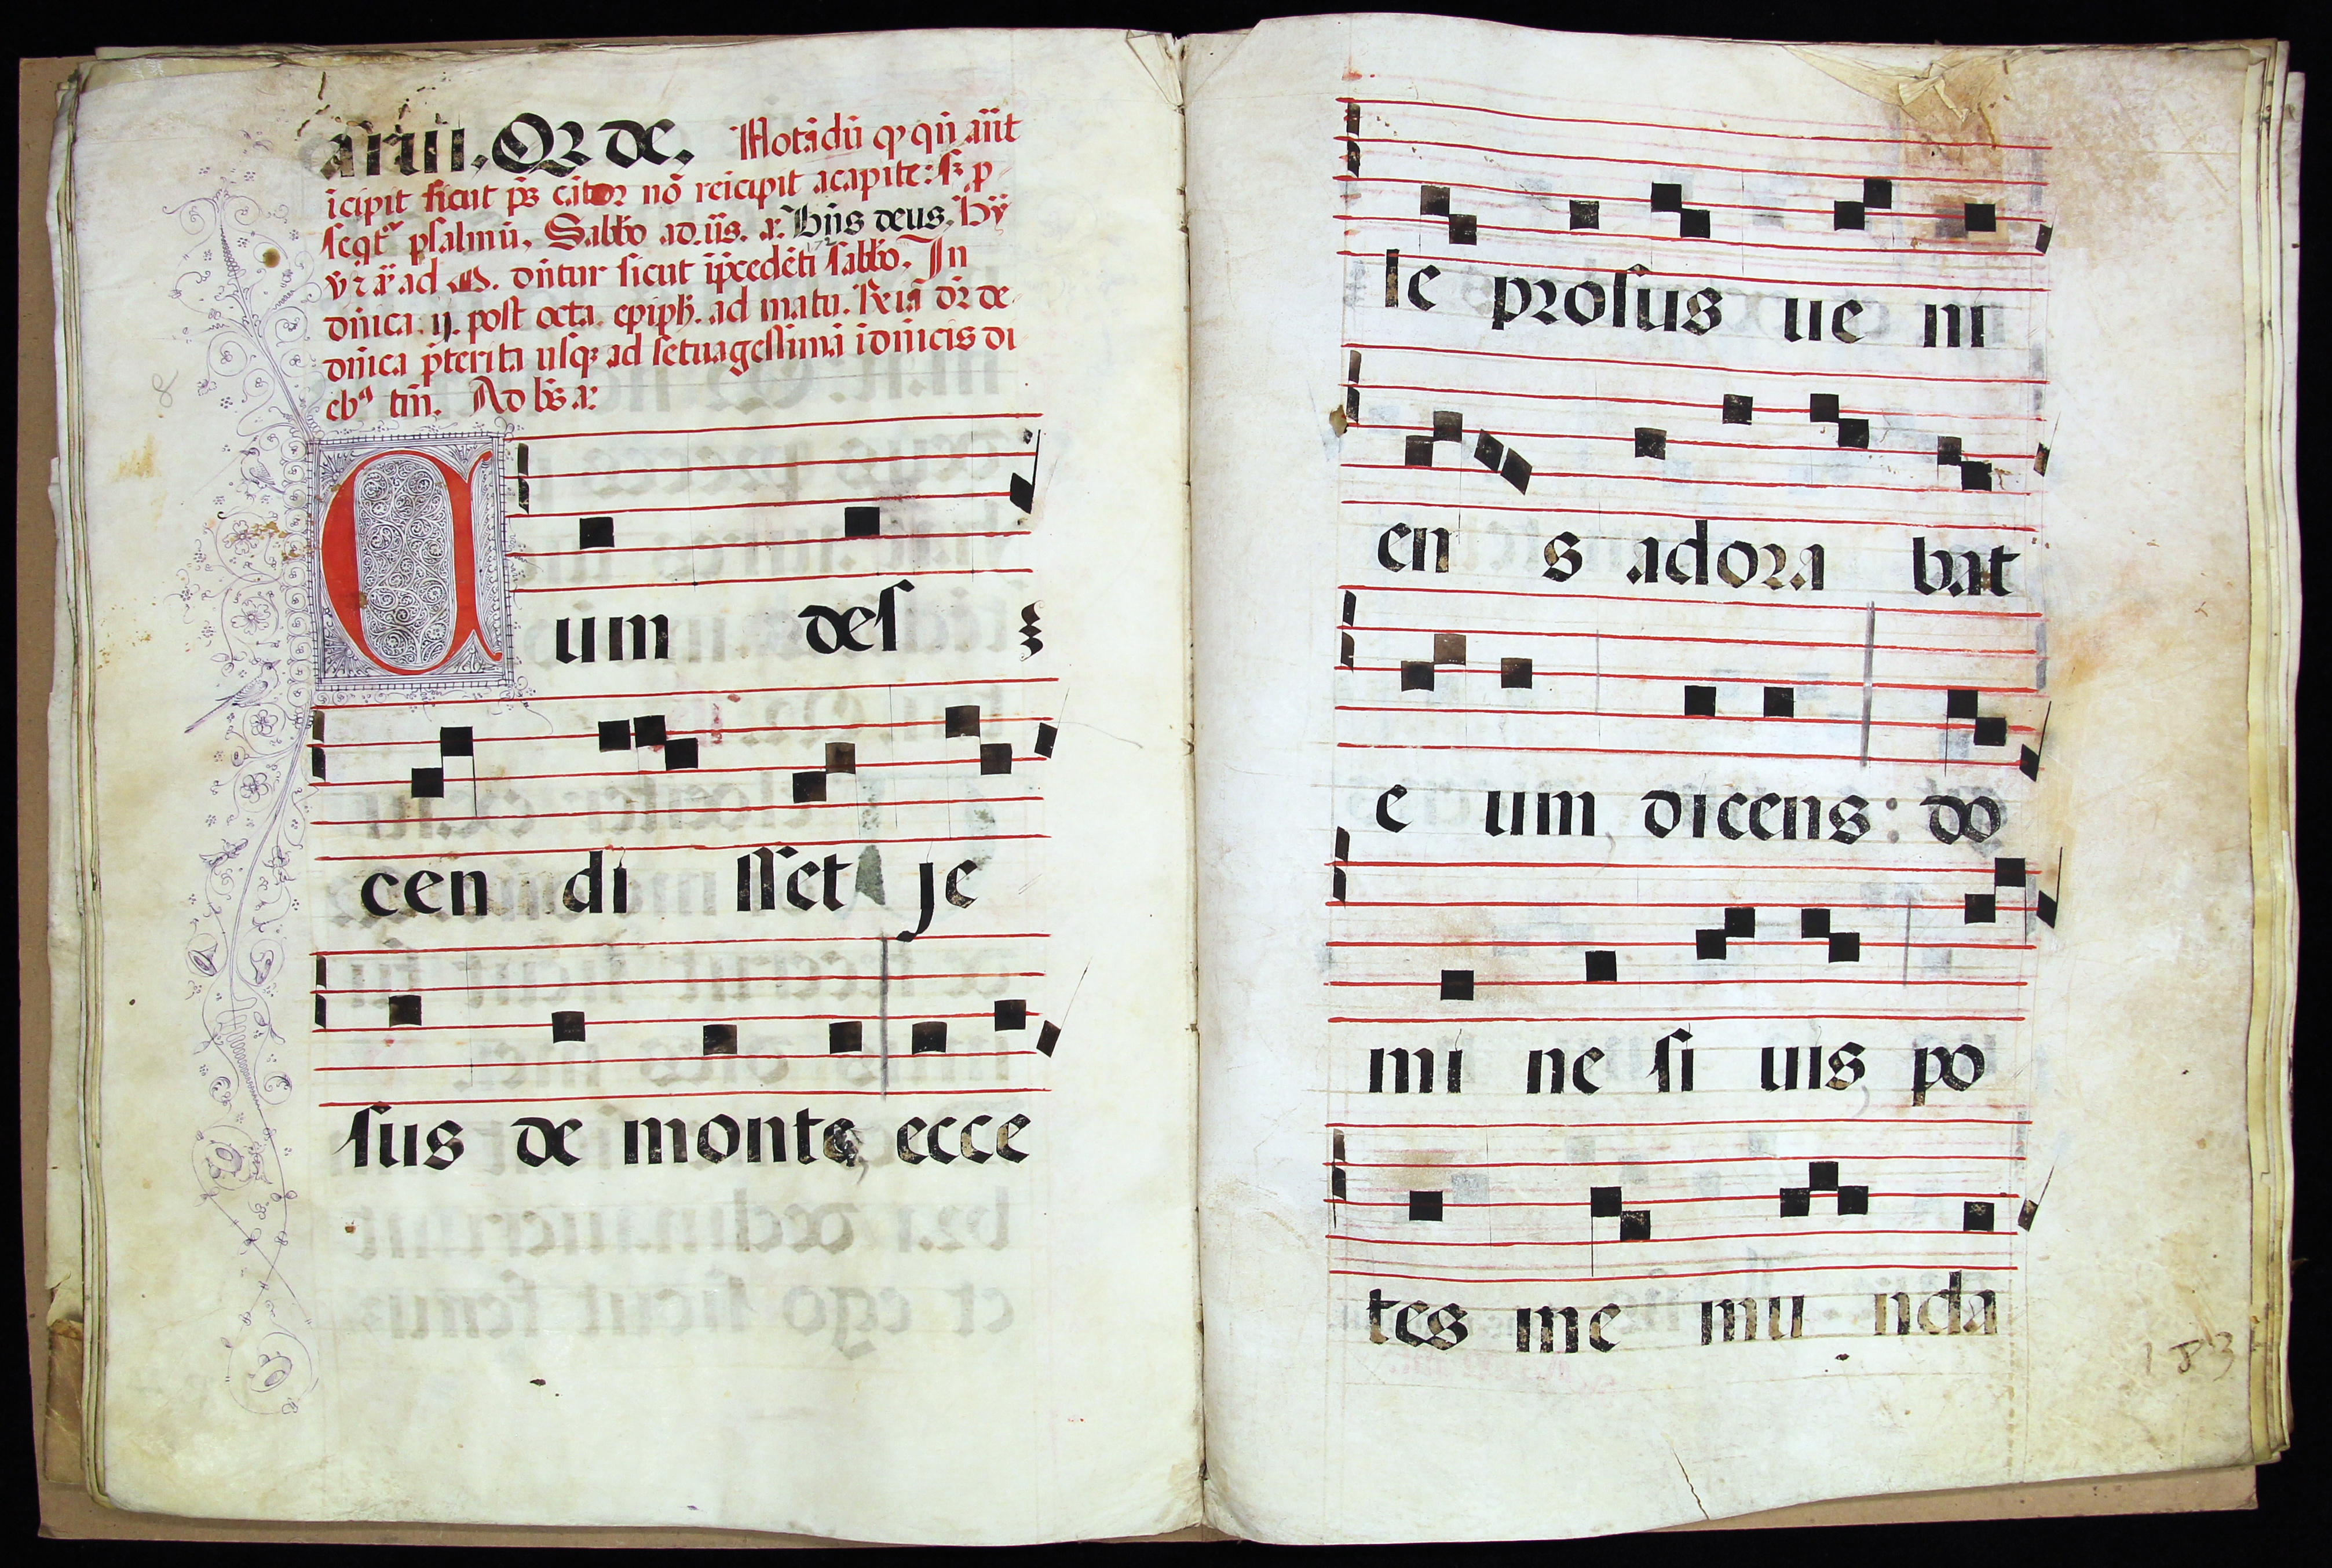 arui. Qz de. Notādū qꝫ qn̄ añt
īcipit sicut ps̄ cātor nō reīcipit acapite: sꝫ p
seqt᷑ psalmū. Sabbo ad. ūs. a: Bn̄s deus. Hy᷑
v᷑ ⁊ a᷑ ad M. dn̄tur sicut ip̄cedēti sabbo. In
dn̄ica. ij. post octa. epiph. ad matu. Reīa dr̄ de
dn̄ica p̄terita usqꝫ ad setuagessimā īdn̄icis di
ebꝫ tm̄. Ad bs̄ a:
Cum des
cen di sset je
sus de monte, ecce
le prosus ue ni
en s adora bat
e um dicens: do
mi ne si uis po
tes me mu nda
183